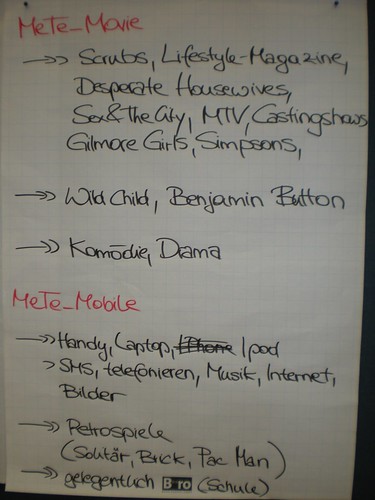 MeTe_Movie
→> Scrubs, Lifestyle-Magazine,
Desperate Housewives,
Sex&The City, MTV, Castingshows
Gilmore Girls, Simpsons,
→> Wild Child, Benjamin Button
→> Komödie, Drama
MeTe_Mobile
→> Handy, Laptop, iPhone Ipod
> SMS, telefonieren, Musik, Internet,
Bilder
→> Retrospiele
(Solitär, Brick, Pac Man)
→> gelegentlich Büro (Schule)